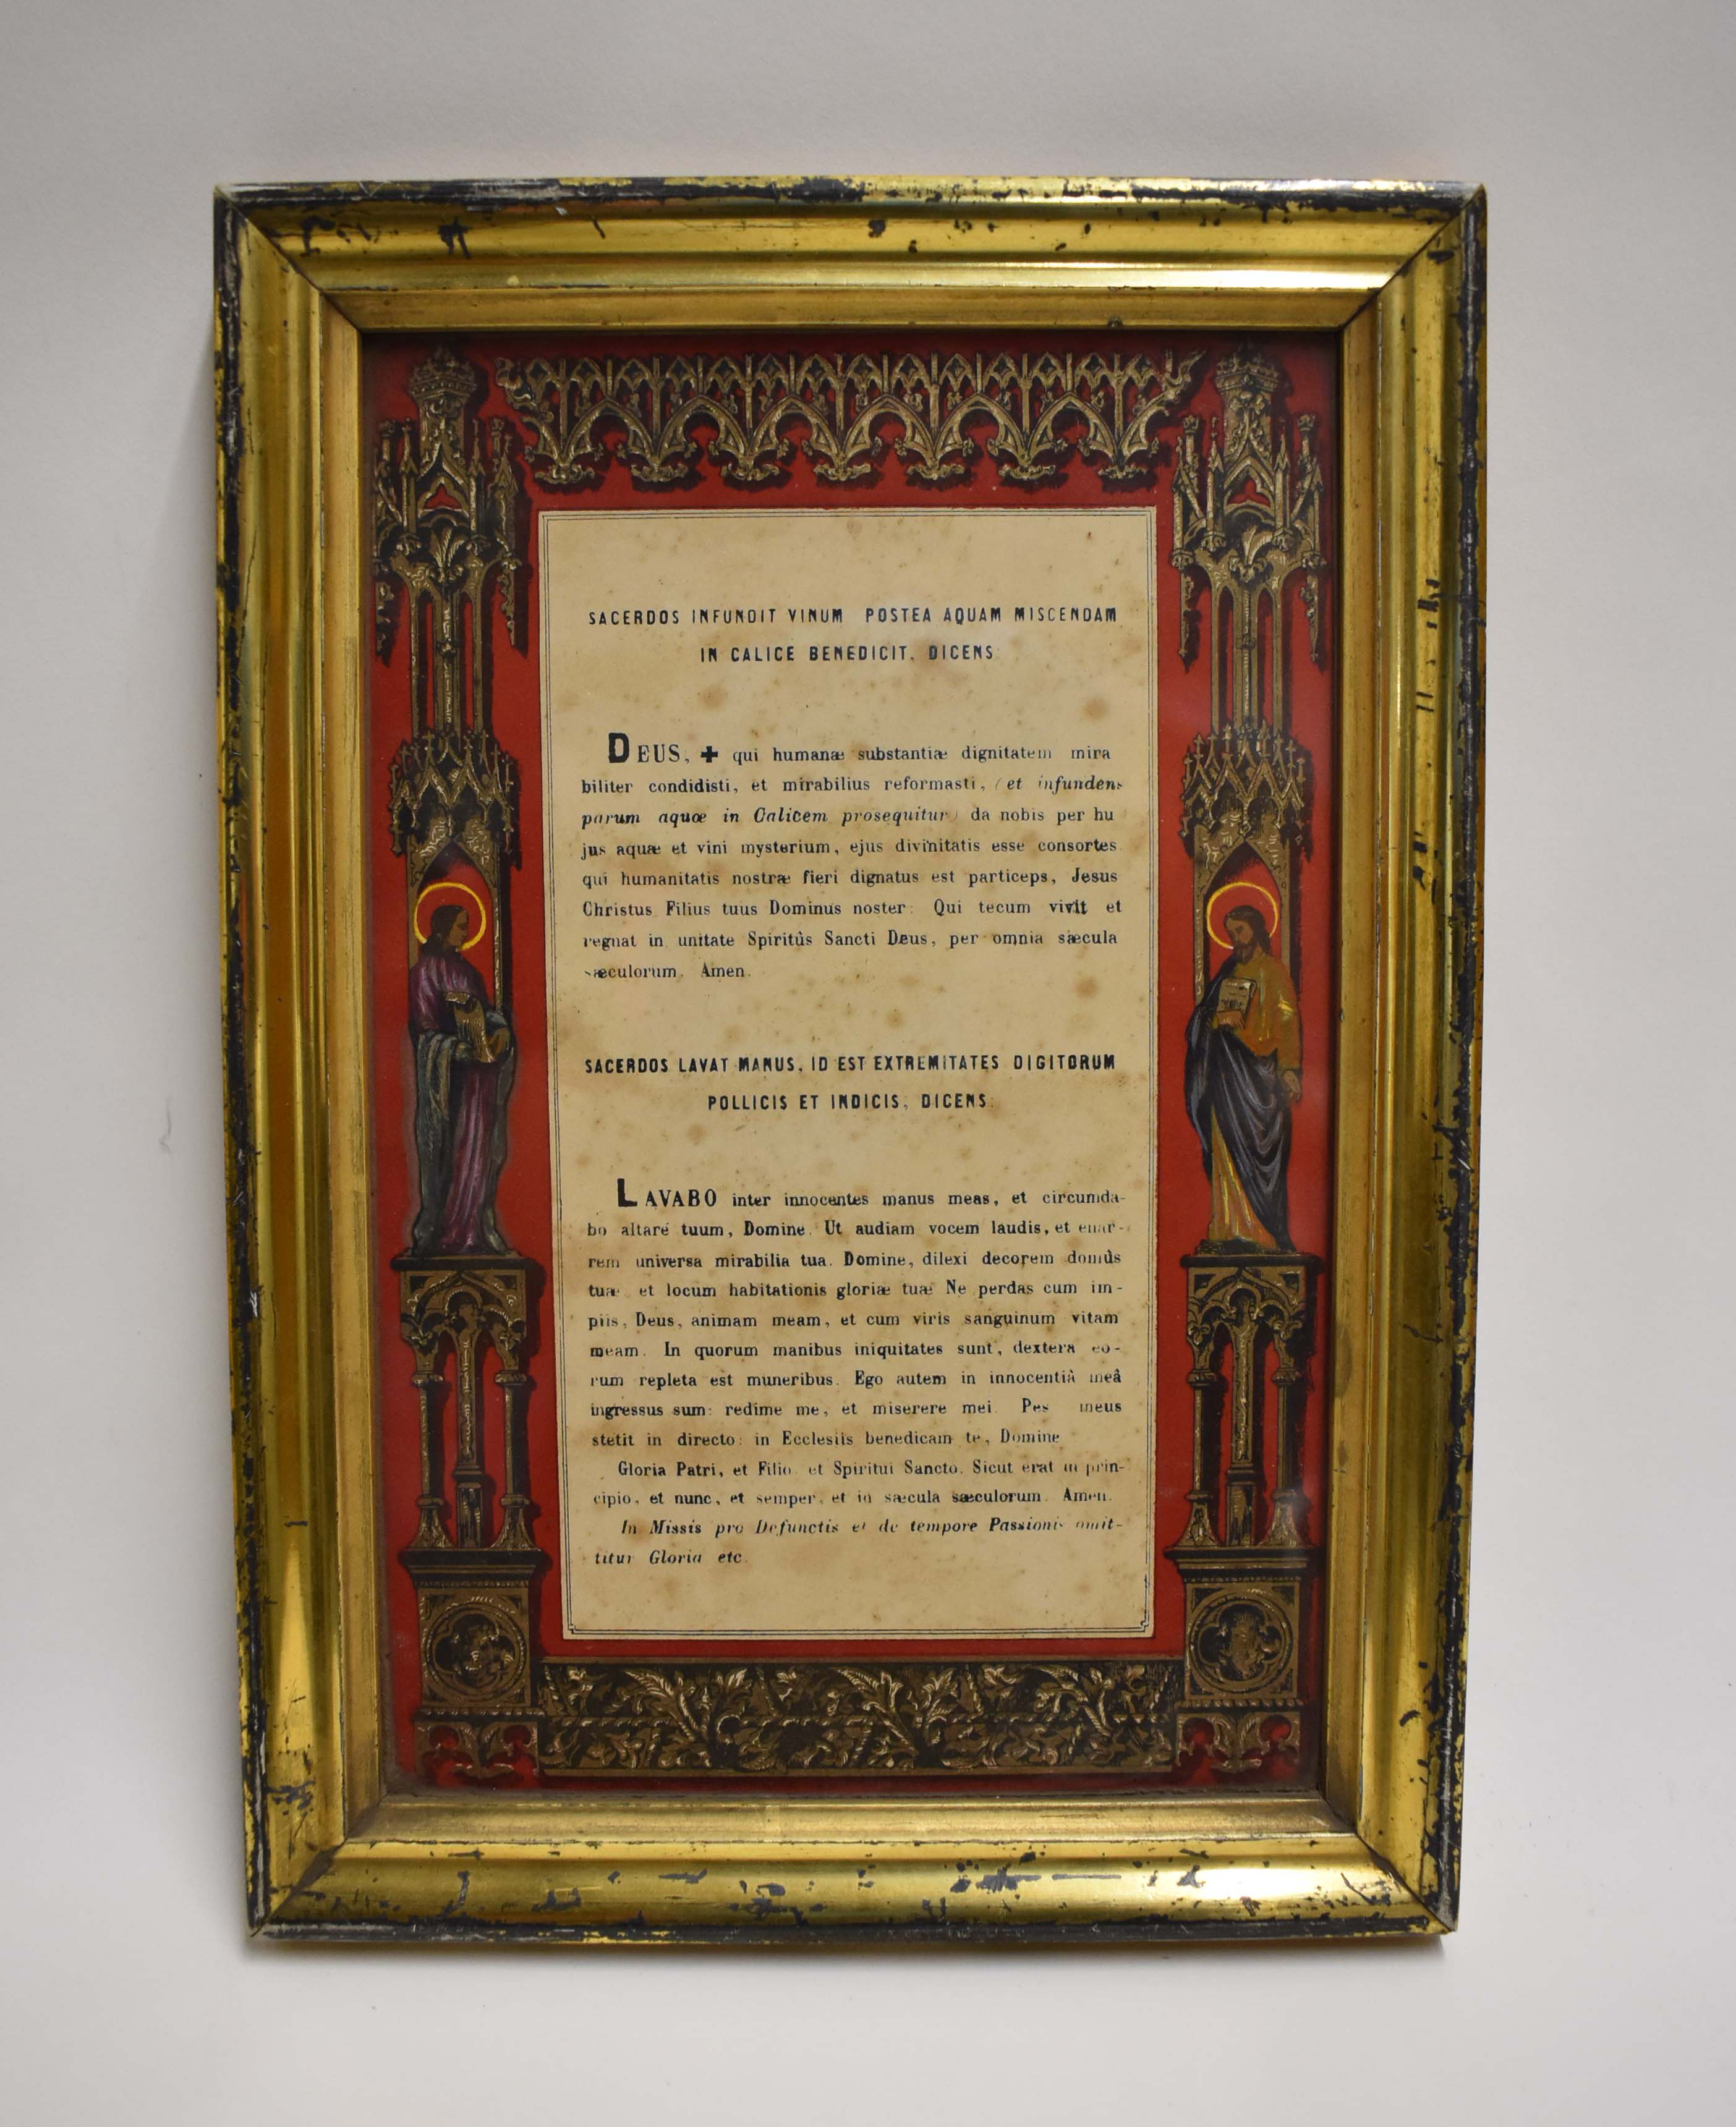 SACERDOS INFUNDIT VINUM POSTEA AQUAM MISCENDAM
IN CALICE BENEDICIT, DICENS
DEUS, ✚ qui humanæ substantiæ dignitatem mira
biliter condidisti, et mirabilius reformasti, (et infundens
parum aquæ in Calicem prosequitur) da nobis per hu
jus aquæ et vini mysterium, ejus divinitatis esse consortes
qui humanitatis nostræ fieri dignatus est particeps, Jesus
Christus Filius tuus Dominus noster: Qui tecum vivit et
regnat in unitate Spiritûs Sancti Deus, per omnia sæcula
sæculorum. Amen.
SACERDOS LAVAT MANUS, ID EST EXTREMITATES DIGITORUM
POLLICIS ET INDICIS, DICENS:
LAVABO inter innocentes manus meas, et circumda-
bo altare tuum, Domine. Ut audiam vocem laudis, et enar-
rem universa mirabilia tua. Domine, dilexi decorem domûs
tuæ et locum habitationis gloriæ tuæ Ne perdas cum im-
piis, Deus, animam meam, et cum viris sanguinum vitam
meam. In quorum manibus iniquitates sunt, dextera eo-
rum repleta est muneribus. Ego autem in innocentiâ meâ
ingressus sum: redime me, et miserere mei Pes meus
stetit in directo: in Ecclesiis benedicam te, Domine
Gloria Patri, et Filio et Spiritui Sancto. Sicut erat in prin-
cipio, et nunc, et semper, et in sæcula sæculorum. Amen.
In Missis pro Defunctis et de tempore Passionis omit-
titur Gloria etc.